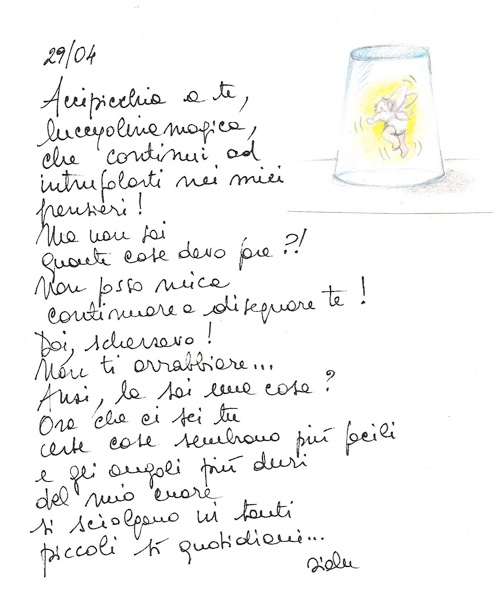 29/04
Accipicchia a te,
lucciolina magica,
che continui ad
intrufolarti nei miei
pensieri!
Ma non sai
quante cose devo fare?!
Non posso mica
continuare a disegnare te!
Dai, scherzavo!
Non ti arrabbiare...
Anzi, la sai una cosa?
Ora che ci sei tu
certe cose sembrano più facili
e gli angoli più duri
del mio cuore
si sciolgono in tanti
piccoli sì quotidiani...